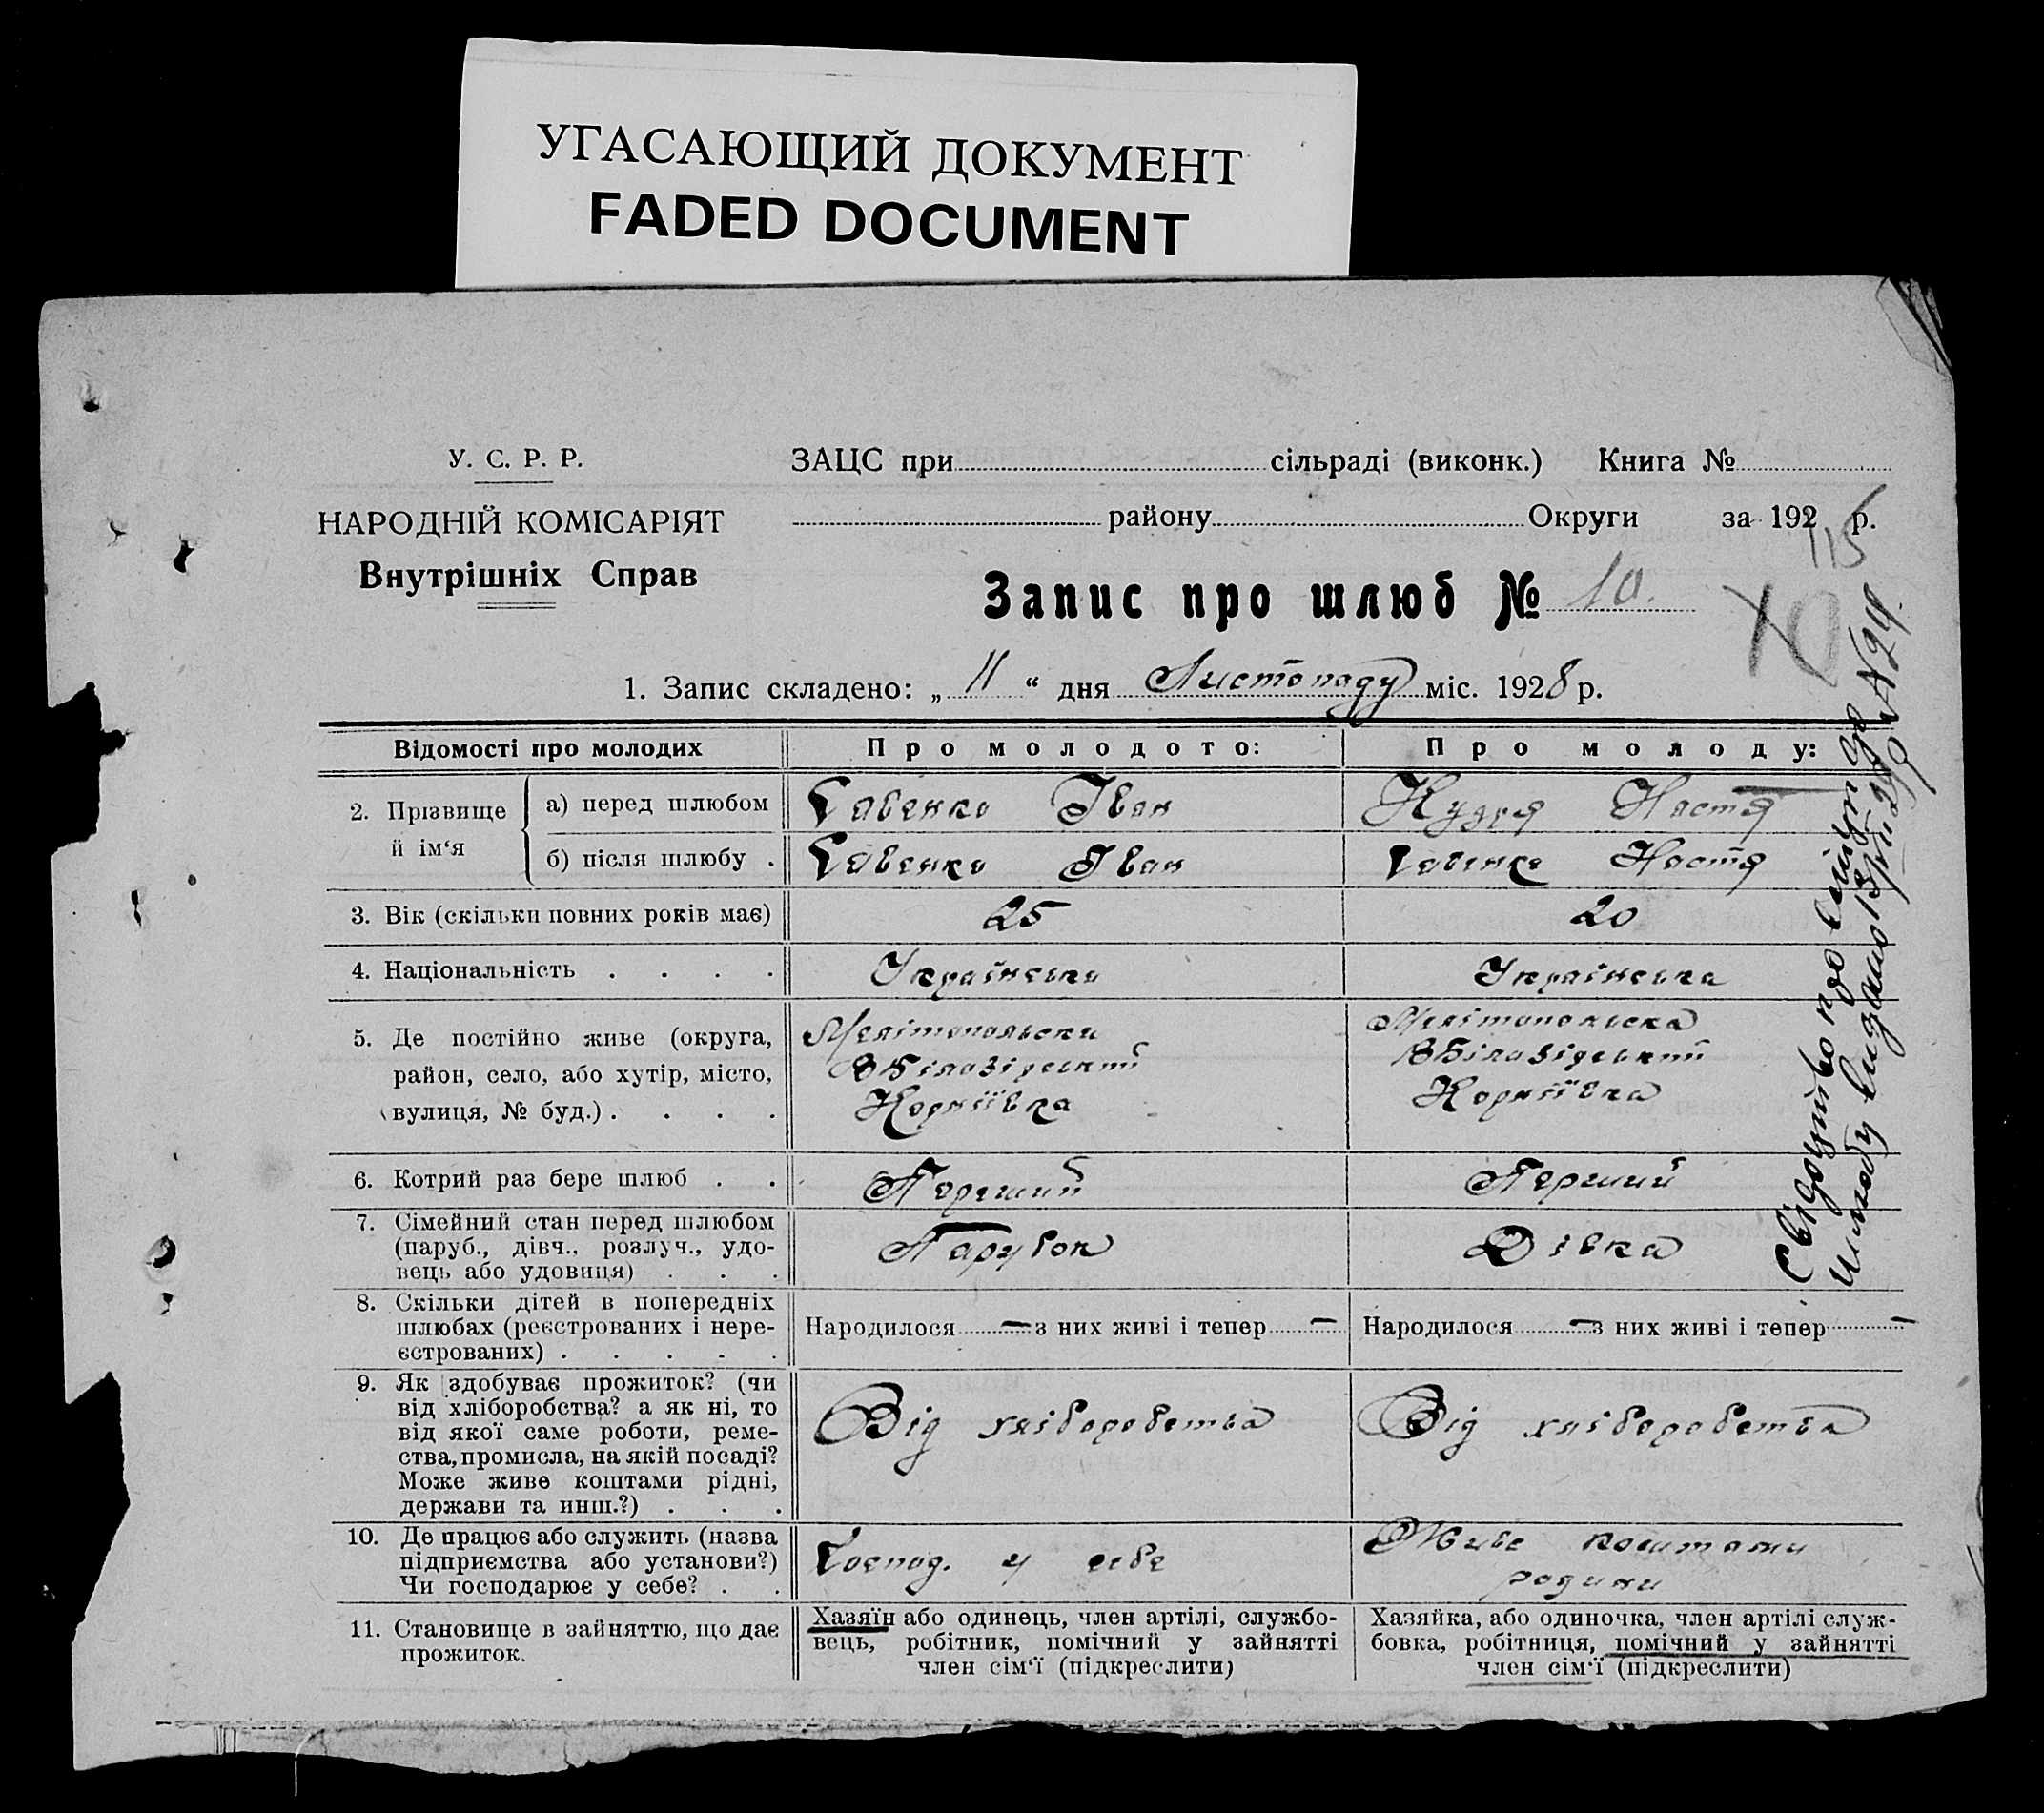 УГАСАЮЩИЙ ДОКУМЕНТ
FADED DOCUMENT
У. С. Р. Р.
НАРОДНІЙ КОМІСАРІЯТ
Внутрішніх Справ
ЗАЦС при сільраді (виконк.) Книга №
району Округи за 192 р.
115
Запис про шлюб № 10.
10
1. Запис складено: „ 11 “ дня Листопаду міс. 1928 р.
Відомості про молодих Про молодого: Про молоду:
2. Прізвище й ім‘я
а) перед шлюбом Савенко Іван Кудря Настя
б) після шлюбу . Савенко Іван Савенко Настя
3. Вік (скільки повних років має) 25 20
4. Національність . . . . Українська Українська
5. Де постійно живе (округа,
район, село, або хутір, місто,
вулиця, № буд.) . . . .
Мелітопольська
Корніївка
Мелітопольська
Корніївка
6. Котрий раз бере шлюб . . Перший Перший
7. Сімейний стан перед шлюбом
(паруб., дівч., розлуч., удо-
вець або удовиця) . . .
Парубок Дівка
8. Скільки дітей в попередніх
шлюбах (реєстрованих і нере-
єстрованих) . . . . .
Народилося — з них живі і тепер — Народилося — з них живі і тепер —
9. Як здобуває прожиток? (чи
від хліборобства? а як ні, то
від якої саме роботи, реме-
ства, промисла, на якій посаді?
Може живе коштами рідні,
держави та инш.?) . . .
Від хліборобства Від хліборобства
10. Де працює або служить (назва
підприємства або установи?)
Чи господарює у себе? . .
Господ. у себе
Живе коштами
родини
11. Становище в зайняттю, що дає
прожиток.
Хазяїн або одинець, член артілі, службо-
вець, робітник, помічний у зайнятті
член сім‘ї (підкреслити)
Хазяйка, або одиночка, член артілі служ-
бовка, робітниця, помічний у зайнятті
член сім‘ї (підкреслити)
Свідоцтво про
шлюбу видано